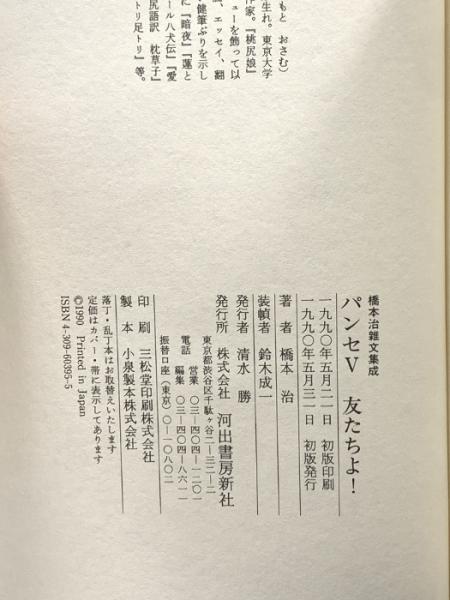 もと おさむ)
生れ。東京大学
作家。『桃尻娘』
ューを飾って以
、エッセイ、翻
健筆ぶりを示し
に『暗夜』『蓮と
ール八犬伝』『愛
尻語訳 枕草子』
トリ足トリ』等。
橋本治雑文集成
パンセⅤ 友たちよ!
一九九〇年五月二一日 初版印刷
一九九〇年五月三一日 初版発行
著者 橋本 治
装幀者 鈴木成一
発行者 清水 勝
発行所 株式会社 河出書房新社
東京都渋谷区千駄ヶ谷二―三二―二
電話 営業 〇三―四〇四―一二〇一
編集 〇三―四〇四―八六一一
振替口座(東京)〇―一〇八〇二
印刷 三松堂印刷株式会社
製本 小泉製本株式会社
落丁・乱丁本はお取替えいたします
定価はカバー・帯に表示してあります
©1990 Printed in Japan
ISBN 4-309-60395-5